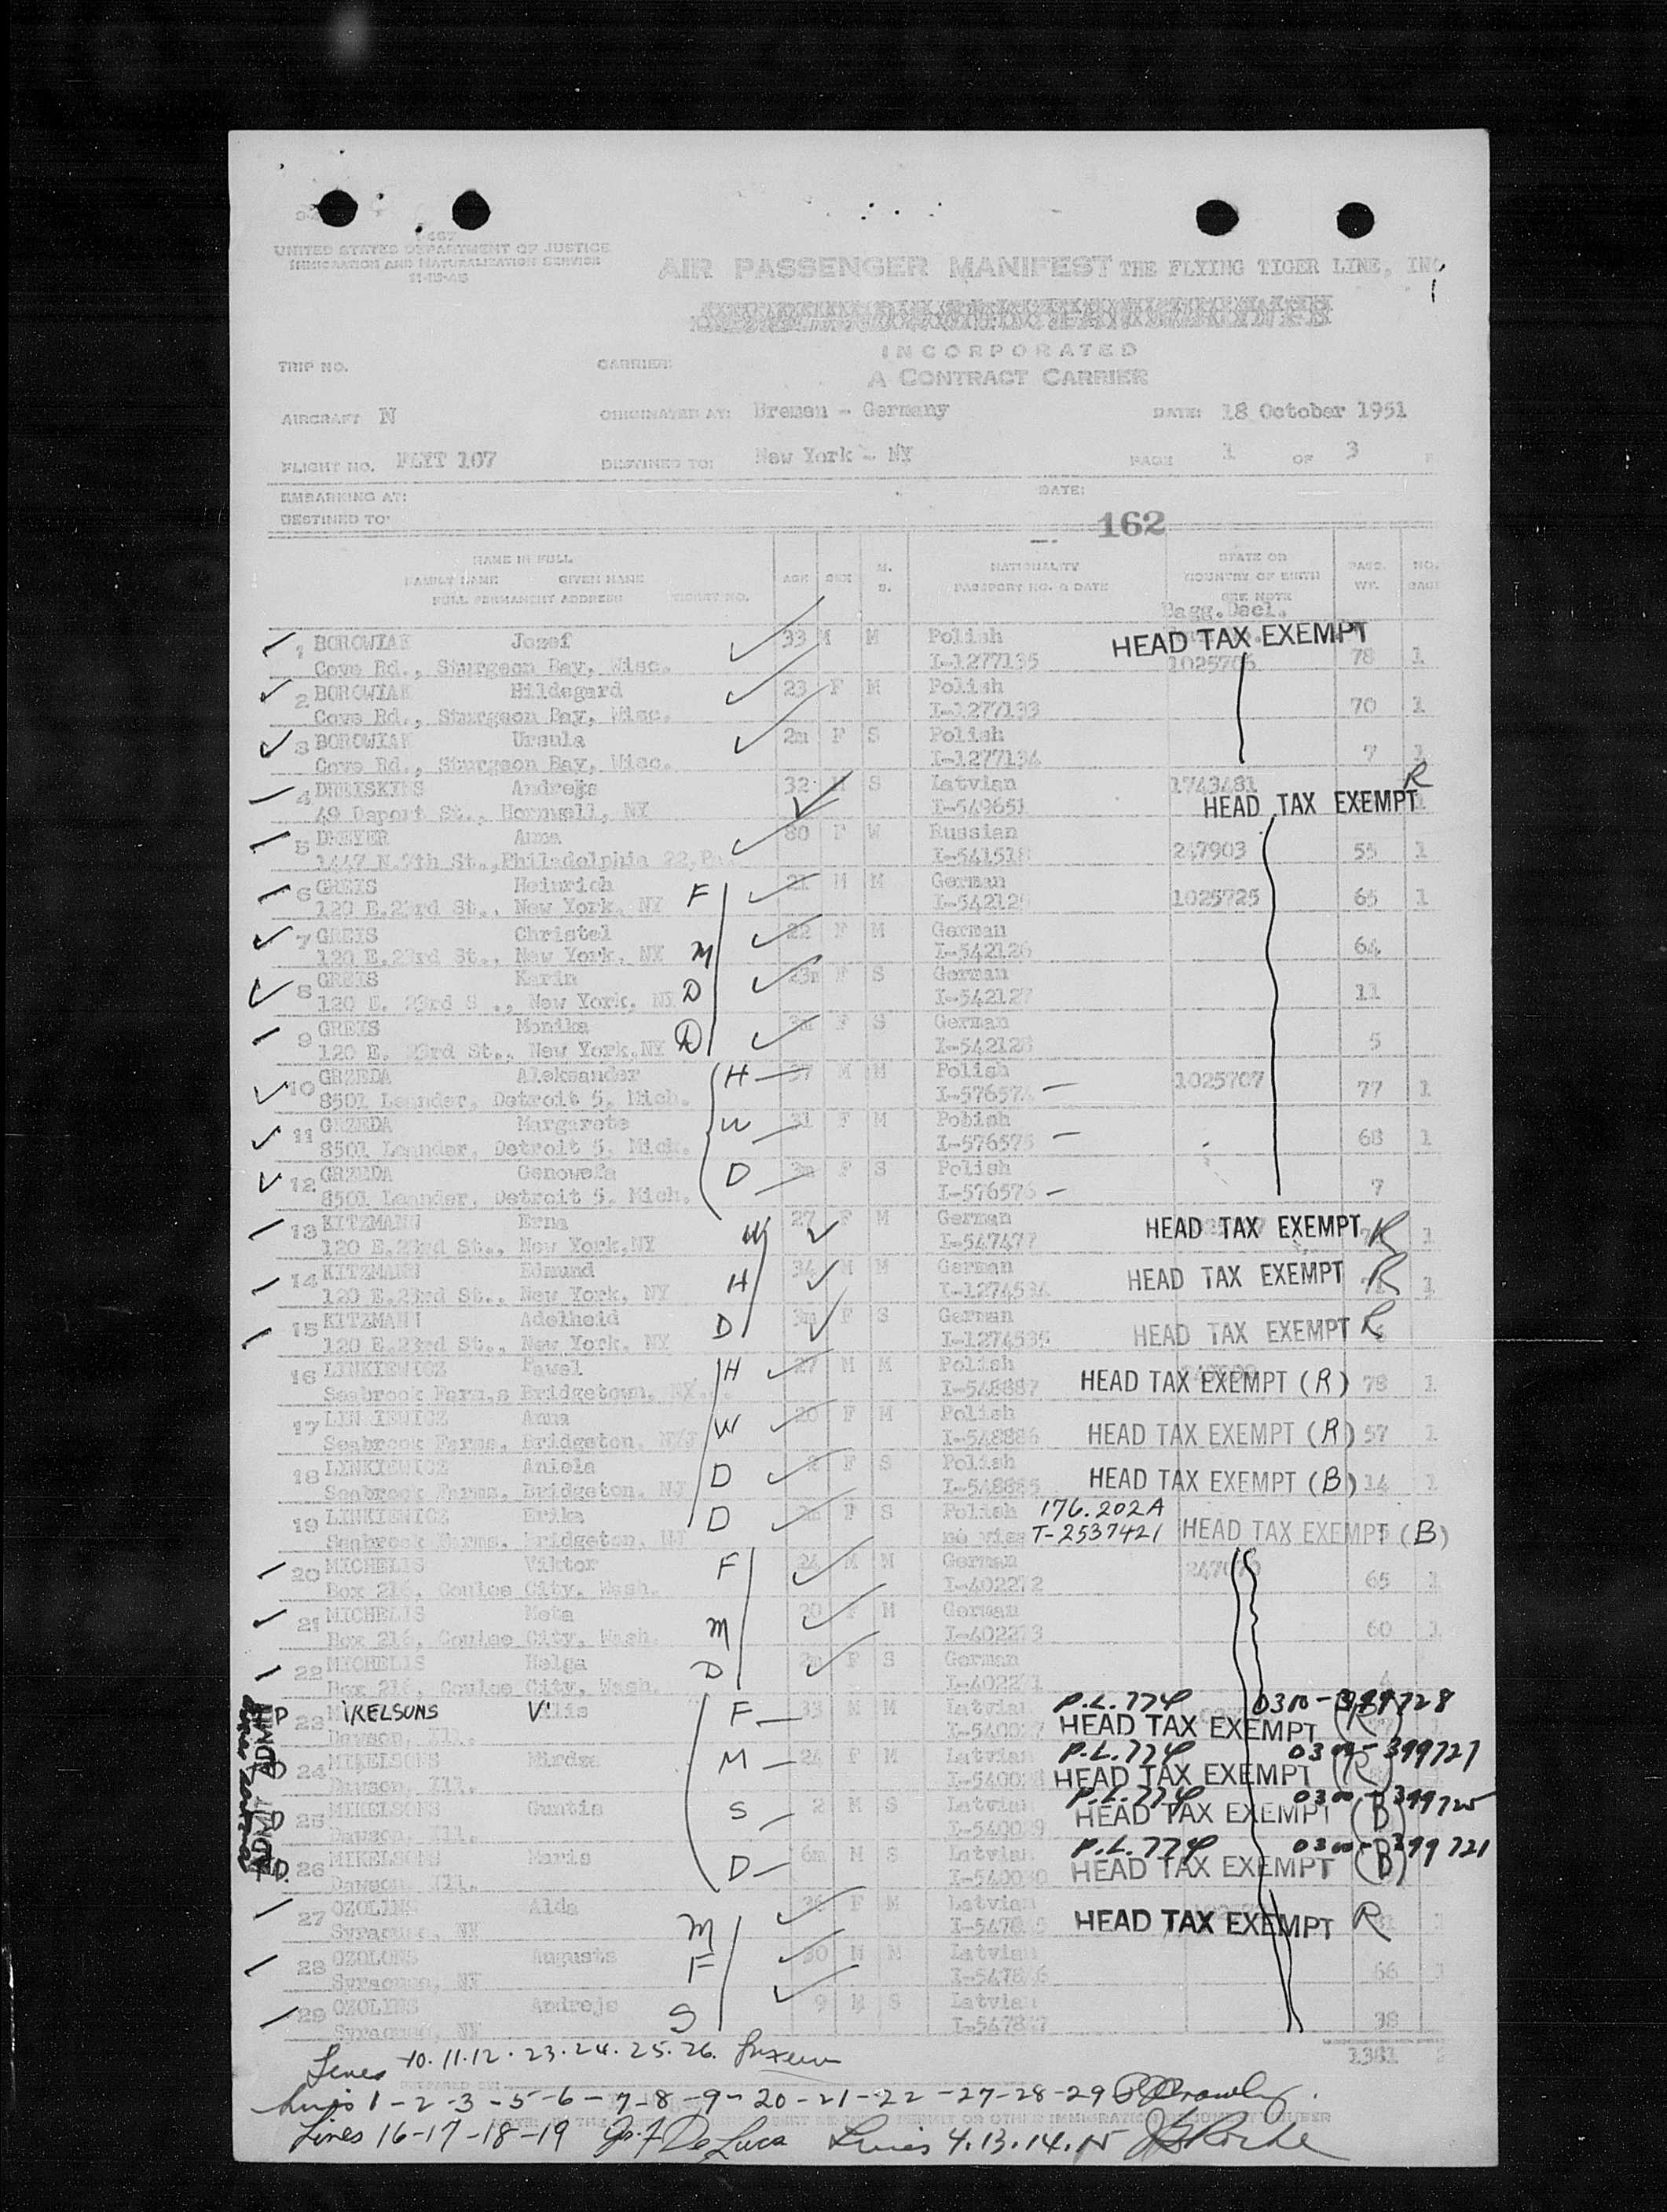 I-467
UNITED STATES DEPARTMENT OF JUSTICE
IMMIGRATION AND NATURALIZATION SERVICE
11-15-45
AIR PASSENGER MANIFEST THE FLYING TIGER LINE, INC
INCORPORATED
A CONTRACT CARRIER
TRIP NO. CARRIER:
AIRCRAFT N ORIGINATED AT: Bremen - Germany DATE: 18 October 1951
FLIGHT NO. FLYT 107 DESTINED TO: New York - NY PAGE 1 OF 3
EMBARKING AT: DATE:
DESTINED TO:
162
NAME IN FULL
FAMILY NAME GIVEN NAME
FULL PERMANENT ADDRESS TICKET NO.
AGE SEX M. S. NATIONALITY PASSPORT NO. & DATE STATE OR COUNTRY OF BIRTH SEE NOTE PASS. WT. NO.
Bagg.Decl.
1 BOROWIAK Jozef 33 M M Polish HEAD TAX EXEMPT
Cove Rd., Sturgeon Bay, Wisc. I-1277135 1025706 78 1
2 BOROWIAK Hildegard 23 F M Polish
Cove Rd., Sturgeon Bay, Wisc. I-1277133 70 1
3 BOROWIAK Ursula 2m F S Polish
Cove Rd., Sturgeon Bay, Wisc. I-1277134 7 1
4 Andrejs 32 M S Latvian 1743481 R
49 Deport St., Hornwell, NY I-549651 HEAD TAX EXEMPT 1
5 DWEYER Anna 80 F W Russian
1447 N.7th St.,Philadelphia 22,Pa. I-541518 247903 55 1
6 GREIS Heinrich F 21 M M German
120 E.23rd St., New York, NY I-542125 1025725 65 1
7 GREIS Christel 22 F M German
120 E.23rd St., New York, NY M I-542126 64
8 GREIS Karin 23m F S German
120 E. 23rd S ., New York, NY D I-542127 11
9 GREIS Monika 3m F S German
120 E. 23rd St., New York,NY D I-542128 5
10 GRZEDA Aleksander H 37 M M Polish
8501 Leander, Detroit 5, Mich. I-576574 1025707 77 1
11 GRZEDA Margarete W 31 F M Polish
8501 Leander, Detroit 5, Mich. I-576575 68 1
12 GRZEDA Genowefa D 3m F S Polish
8501 Leander, Detroit 5, Mich. I-576576 7
13 KITZMANN Erna W 27 F M German HEAD TAX EXEMPT R
120 E.23rd St., New York,NY I-547477 1
14 KITZMANN Edmund H 34 M M German HEAD TAX EXEMPT R
120 E.23rd St., New York, NY I-1274534 71 1
15 KITZMANN Adelheid D 3m F S German HEAD TAX EXEMPT R
120 E.23rd St., New York, NY I-1274535
16 LINKIEWICZ Pawel H 27 M M Polish
Seabrook Farm,s Bridgetown, I-548887 HEAD TAX EXEMPT (R) 78 1
17 LINKIEWICZ Anna W 20 F M Polish
Seabrook Farms, Bridgeton, NJ I-548886 HEAD TAX EXEMPT (R) 57 1
18 LINKIEWICZ Aniela D 2 F S Polish
Seabrook Farms, Bridgeton, NJ I-548885 HEAD TAX EXEMPT (B) 14 1
19 LINKIEWICZ Erika D 2m F S Polish 176.202A
Seabrook Farms, Bridgeton, NJ no visa T-2537421 HEAD TAX EXEMPT (B)
20 MICHELIS Viktor F 24 M M German
Box 216, Coulee City, Wash. I-402272 65 1
21 MICHELIS Meta 20 F M German
Box 216, Coulee City, Wash. M I-402273 60 1
22 MICHELIS Helga 2m F S German
Box 216, Coulee City, Wash. D I-402271 4
23 IKELSONS Vilis F 33 M M Latvian P.L. 774 0300-399728
Dawson, Ill. I-540027 HEAD TAX EXEMPT (R) 1
24 MIKELSONS Mirdza M 24 F M Latvian P.L. 774 0300-399727
Dawson, Ill. I-540028 HEAD TAX EXEMPT (R)
25 MIKELSONS Guntis S 2 M S Latvian P.L. 774 0300-399725
Dawson, Ill. I-540029 HEAD TAX EXEMPT (B)
26 MIKELSONS Maris D 6m M S Latvian P.L. 774 0300-399721
Dawson, Ill. I-540030 HEAD TAX EXEMPT (B)
27 OZOLINS Aida M F M Latvian
Syracuse, NY HEAD TAX EXEMPT R
28 OZOLONS Augusts F 30 M M Latvian
Syracuse, NY I-547866 66
29 OZOLINS Andrejs S 9 M S Latvian
Syracuse, NY I-547867 38
1381
Lines 10.11.12.23.24.25.26.
Lines 1-2-3-5-6-7-8-9-20-21-22-27-28-29
Lines 16-17-18-19 De Luca Lines 4.13.14.15